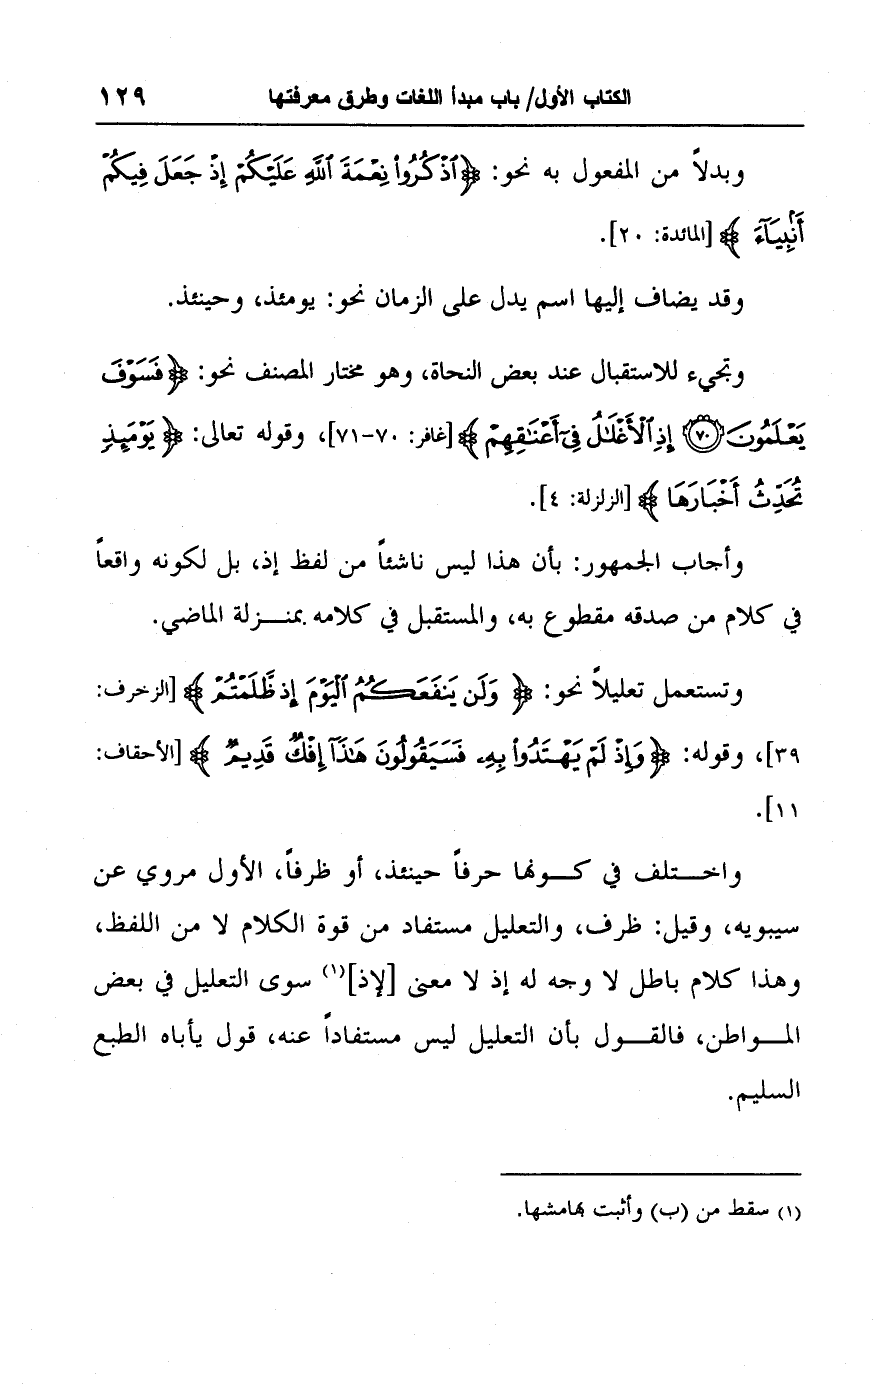 الكتاب الأول/ باب مبدأ اللغات وطرق معرفتها ١٢٩
وبدلاً من المفعول به نحو: ﴿ٱذْكُرُواْ نِعْمَةَ ٱللَّهِ عَلَيْكُمْ إِذْ جَعَلَ فِيكُمْ
أَنۢبِيَآءَ ﴾ [المائدة: ٢٠].
وقد يضاف إليها اسم يدل على الزمان نحو: يومئذ، وحينئذ.
وتجيء للاستقبال عند بعض النحاة، وهو مختار المصنف نحو: ﴿ فَسَوْفَ
يَعْلَمُونَ ٧٠ إِذِ ٱلْأَغْلَٰلُ فِىٓ أَعْنَٰقِهِمْ ﴾ [غافر: ٧٠-٧١]، وقوله تعالى: ﴿ يَوْمَئِذٍ
تُحَدِّثُ أَخْبَارَهَا ﴾ [الزلزلة: ٤].
وأجاب الجمهور: بأن هذا ليس ناشئاً من لفظ إذ، بل لكونه واقعاً
في كلام من صدقه مقطوع به، والمستقبل في كلامه بمنـزلة الماضي.
وتستعمل تعليلاً نحو: ﴿ وَلَن يَنفَعَكُمُ ٱلْيَوْمَ إِذ ظَّلَمْتُمْ ﴾ [الزخرف:
٣٩]، وقوله: ﴿ وَإِذْ لَمْ يَهْتَدُواْ بِهِۦ فَسَيَقُولُونَ هَٰذَآ إِفْكٌ قَدِيمٌ ﴾ [الأحقاف:
١١].
واخـتلف في كـونها حرفاً حينئذ، أو ظرفاً، الأول مروي عن
سيبويه، وقيل: ظرف، والتعليل مستفاد من قوة الكلام لا من اللفظ،
وهذا كلام باطل لا وجه له إذ لا معنى [لإذ](١) سوى التعليل في بعض
المـواطن، فالقـول بأن التعليل ليس مستفاداً عنه، قول يأباه الطبع
السليم.
(١) سقط من (ب) وأثبت بهامشها.